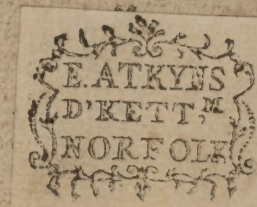 E. ATKYNS
D'KETT,M
NORFOLK